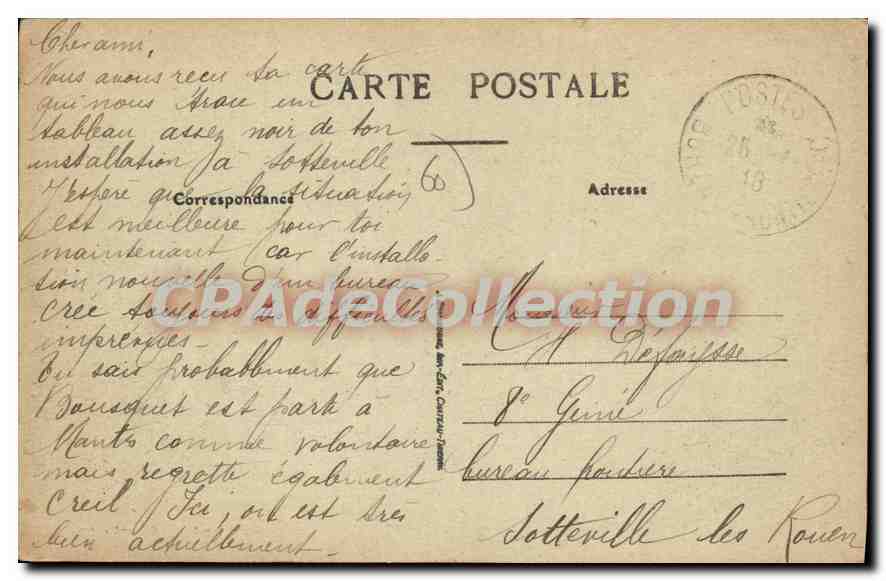 CARTE POSTALE
Correspondance
Adresse
Cher ami,
Nous avons reçu ta carte
qui nous trace un
tableau assez noir de ton
installation à Sotteville
J'espère que la situation
est meilleure pour toi
maintenant car l'installa-
tion nouvelle d'un bureau
crée toujours des difficultés
imprévues -
Tu sais probablement que
Bousquet est parti à
Nantes comme volontaire
mais regrette également
Creil. Ici, on est très
bien actuellement -
60
POSTES
18
Monsieur
8e Génie
bureau frontière
Sotteville les Rouen
IMP.-ÉDIT., CHATEAU-THIERRY
CPAdeCollection.com